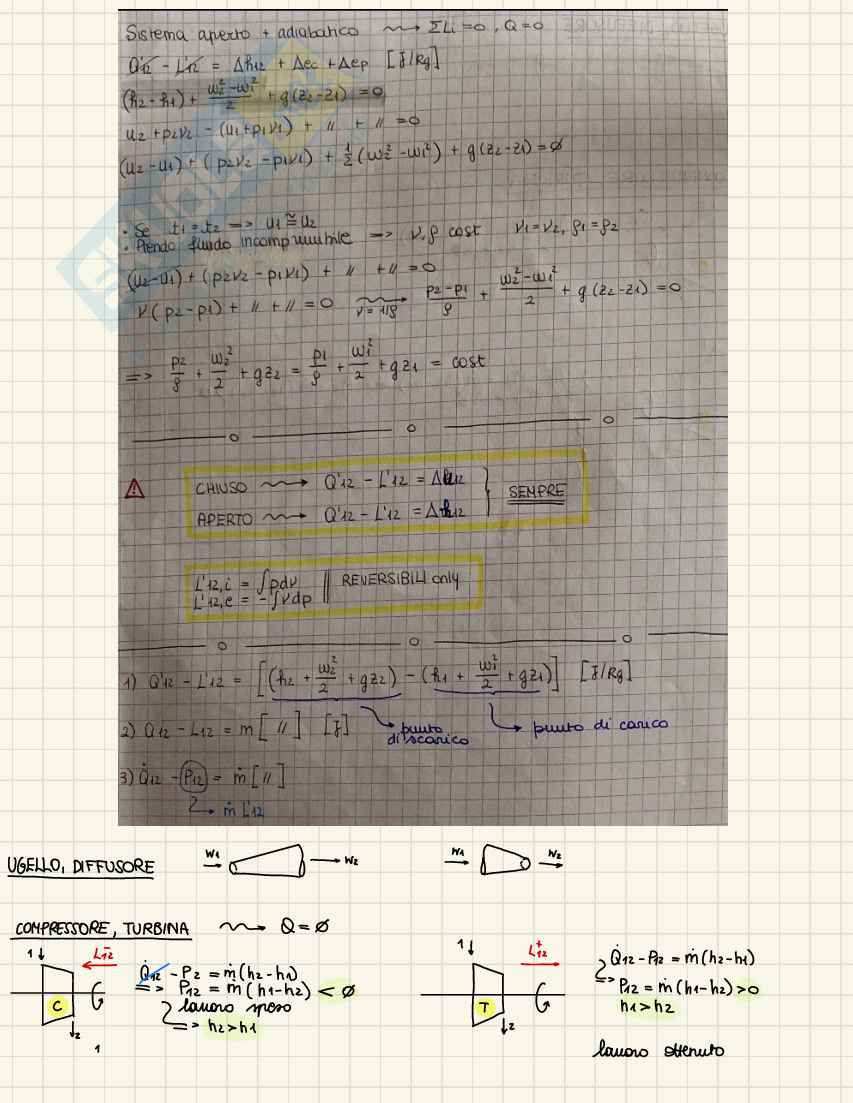 Sistema aperto + adiabatico ⟿ ΣLi = 0, Q = 0
Q'12 - L'12 = Δh12 + Δec + Δep [J/kg]
(h2 - h1) + (w2² - w1²)/2 + g(z2 - z1) = 0
u2 + p2v2 - (u1 + p1v1) + // + // = 0
(u2 - u1) + (p2v2 - p1v1) + 1/2 (w2² - w1²) + g(z2 - z1) = ∅
• Se t1 = t2 => u1 ≅ u2
• Avendo fluido incomprimibile => v, ρ cost v1 = v2, ρ1 = ρ2
(u2 - u1) + (p2v2 - p1v1) + // + // = 0
v(p2 - p1) + // + // = 0 ⟿ v = 1/ρ (p2 - p1)/ρ + (w2² - w1²)/2 + g(z2 - z1) = 0
=> p2/ρ + w2²/2 + gz2 = p1/ρ + w1²/2 + gz1 = cost
CHIUSO ⟿ Q'12 - L'12 = Δu12
APERTO ⟿ Q'12 - L'12 = Δh12
SEMPRE
L'12,i = ∫pdv
L'12,e = -∫vdp
REVERSIBILI only
1) Q'12 - L'12 = [(h2 + w2²/2 + gz2) - (h1 + w1²/2 + gz1)] [J/kg]
2) Q12 - L12 = m [ // ] [J]
punto di scarico
punto di carico
3) Q̇12 - P12 = ṁ [ // ]
ṁ L'12
UGELLO, DIFFUSORE
w1 w2
w1 w2
COMPRESSORE, TURBINA ⟿ Q = ∅
1 L12⁻
Q̇12 - P2 = ṁ(h2 - h1)
=> P12 = ṁ(h1 - h2) < ∅
lavoro speso
=> h2 > h1
C
2
1
1 L12⁺
Q̇12 - P12 = ṁ(h2 - h1)
=> P12 = ṁ(h1 - h2) > 0
h1 > h2
T
2
lavoro ottenuto